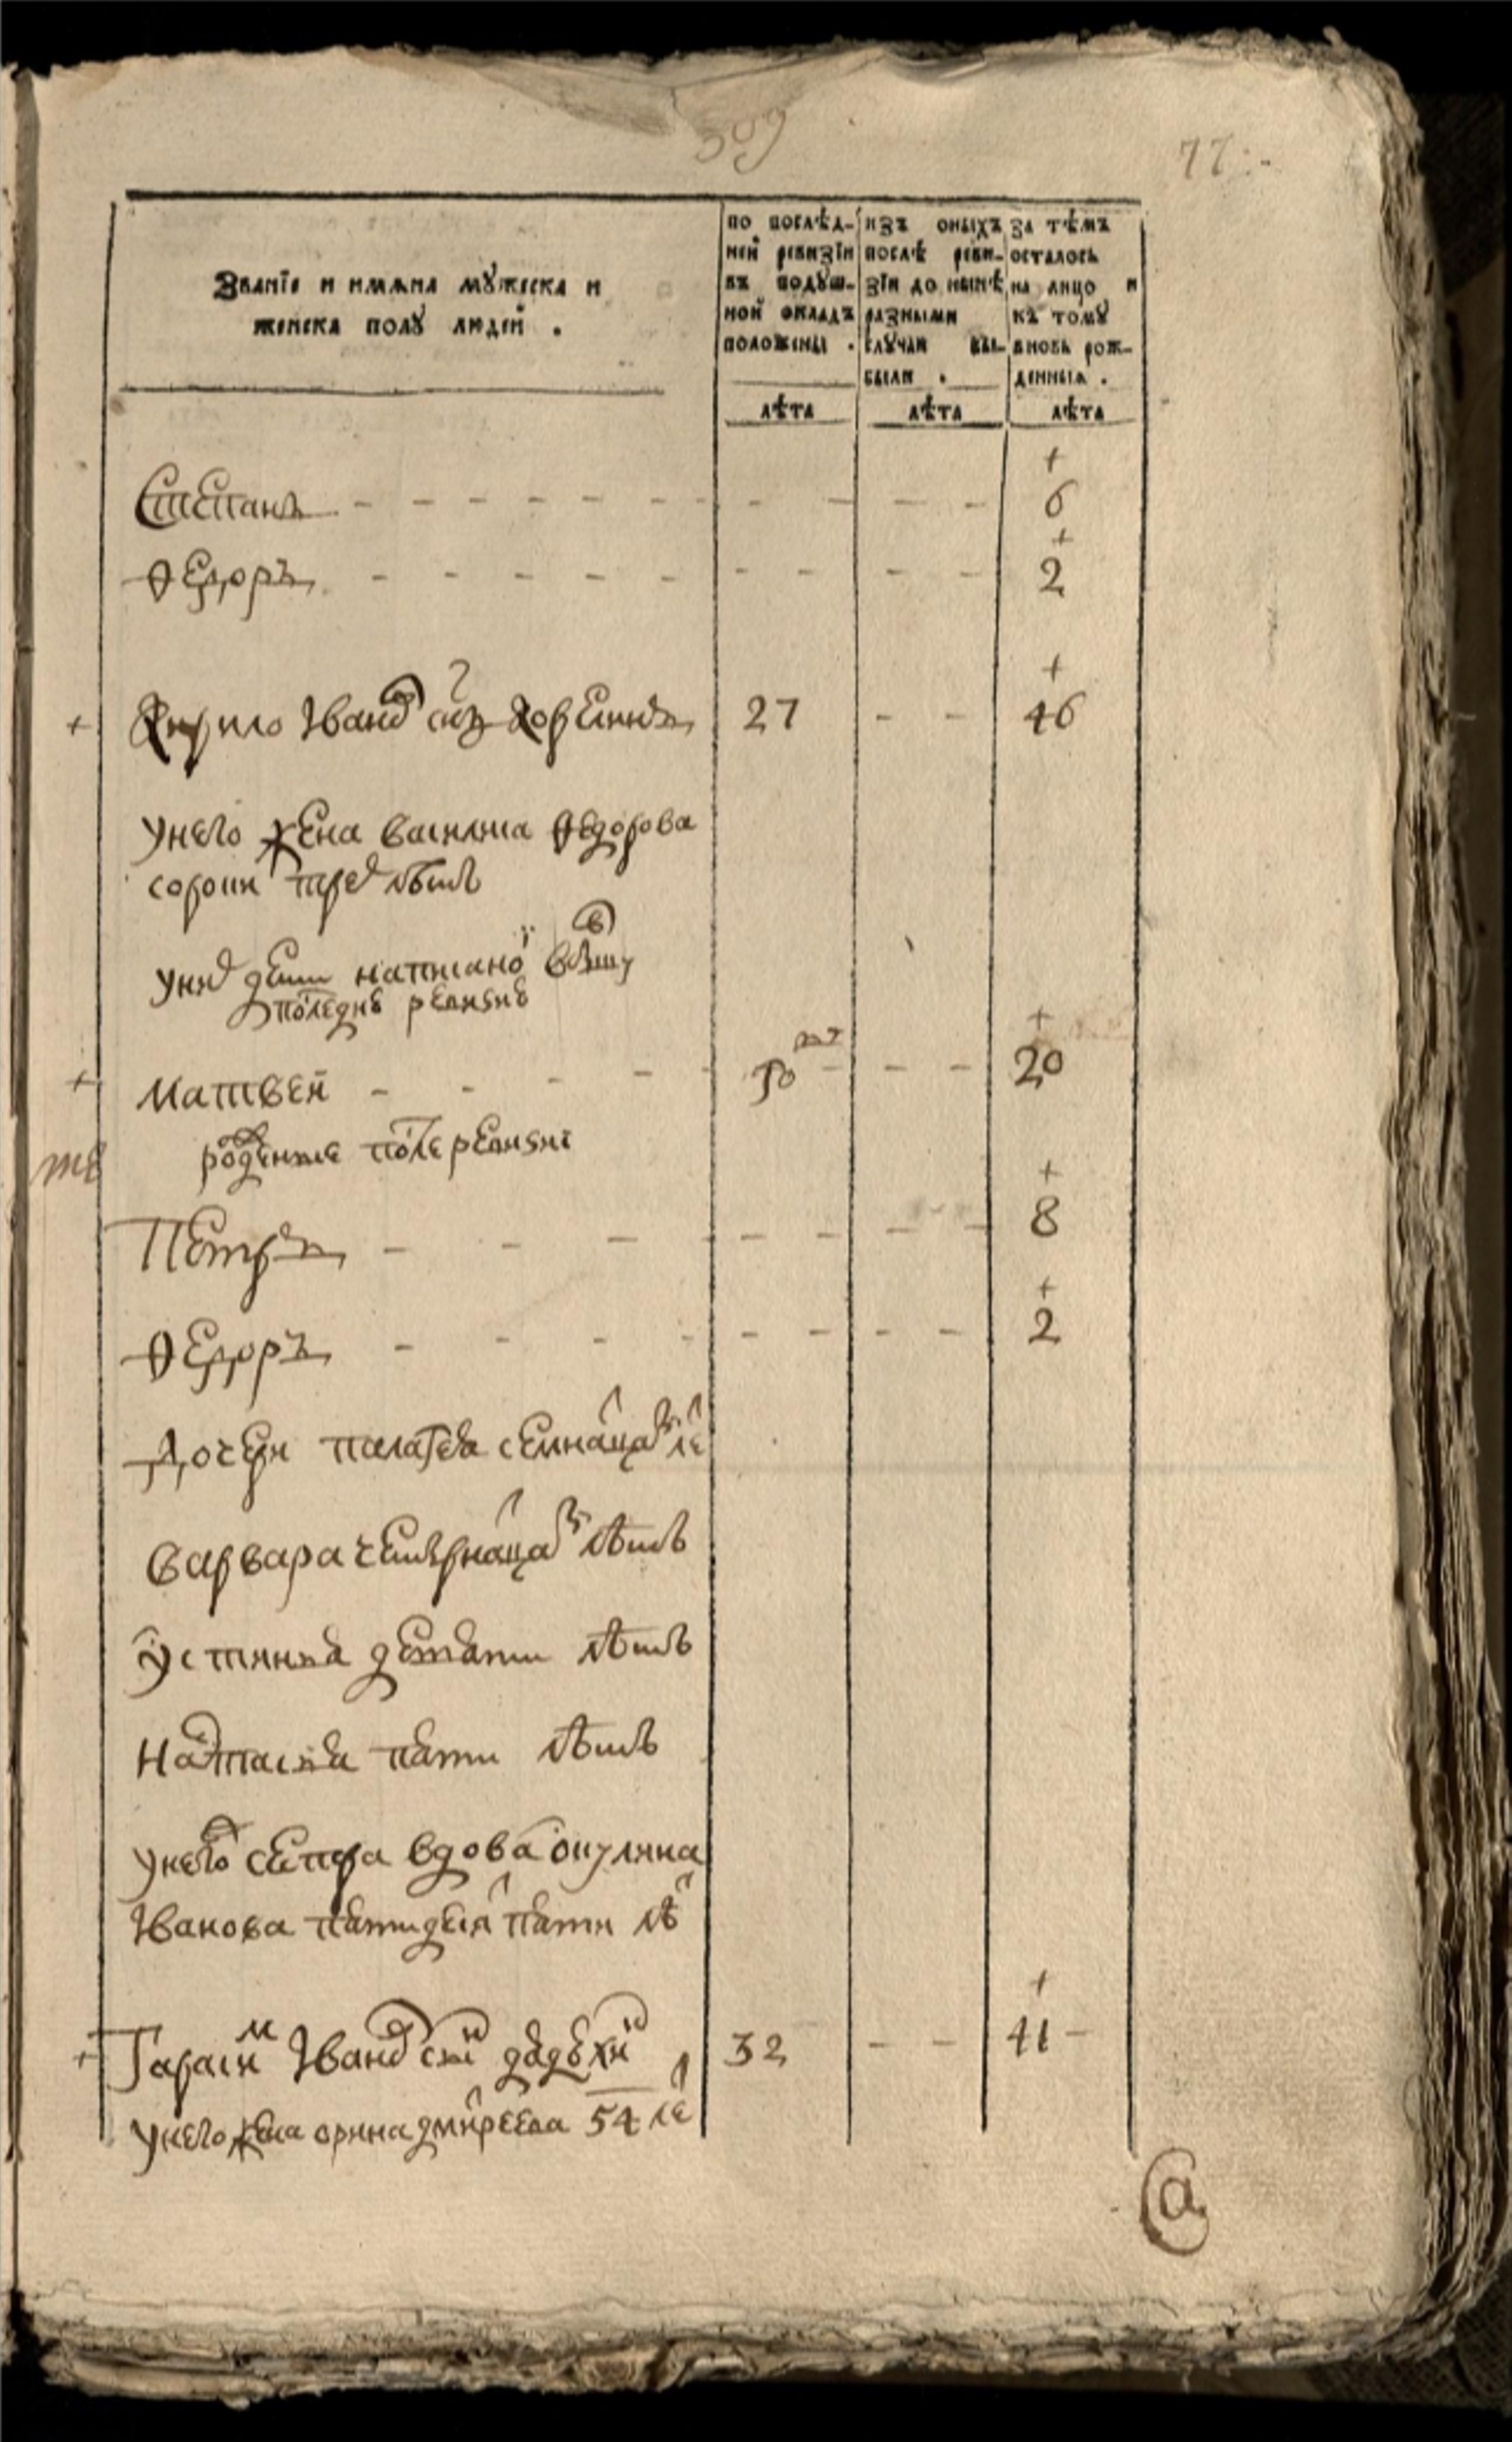 309
77
Званїе и имѧна мꙋжеска и
женска полꙋ людей .
по послѣд-
ней ревизїи
въ подꙋш-
ной окладъ
положены .
лѣта
изъ оныхъ
послѣ реви-
зїи до нынѣ
разными
слꙋчаи вы-
были .
лѣта
за тѣмъ
осталось
на лицо и
къ томꙋ
вновь рож-
денныѧ .
лѣта
+
Степанъ - - - - - - - - - - 6
+
Ѳедоръ - - - - - - - - - 2
+
+ Кирило Ивано сн҃ъ 27 - - 46
У него жена Василиса Ѳедорова
сорокъ трех лѣтъ
У них дети написаные в
последнѣ ревизиѣ
+
+ Матвей - - - - - - 20
рожденые после ревизиї
+
Петръ - - - - - - - - 8
+
Ѳедоръ - - - - - - - - 2
Дочери Пелагея семнацат ле
Варвара четырнацат лѣтъ
Устинья девяти лѣтъ
Настасья пяти лѣтъ
У него сестра вдова Окулина
Иванова пятидесят пяти лѣ
+
+ Гарасим Иванов сн҃ъ 32 - - 41 -
У него жена Орина Дмитреева 54 ле
а